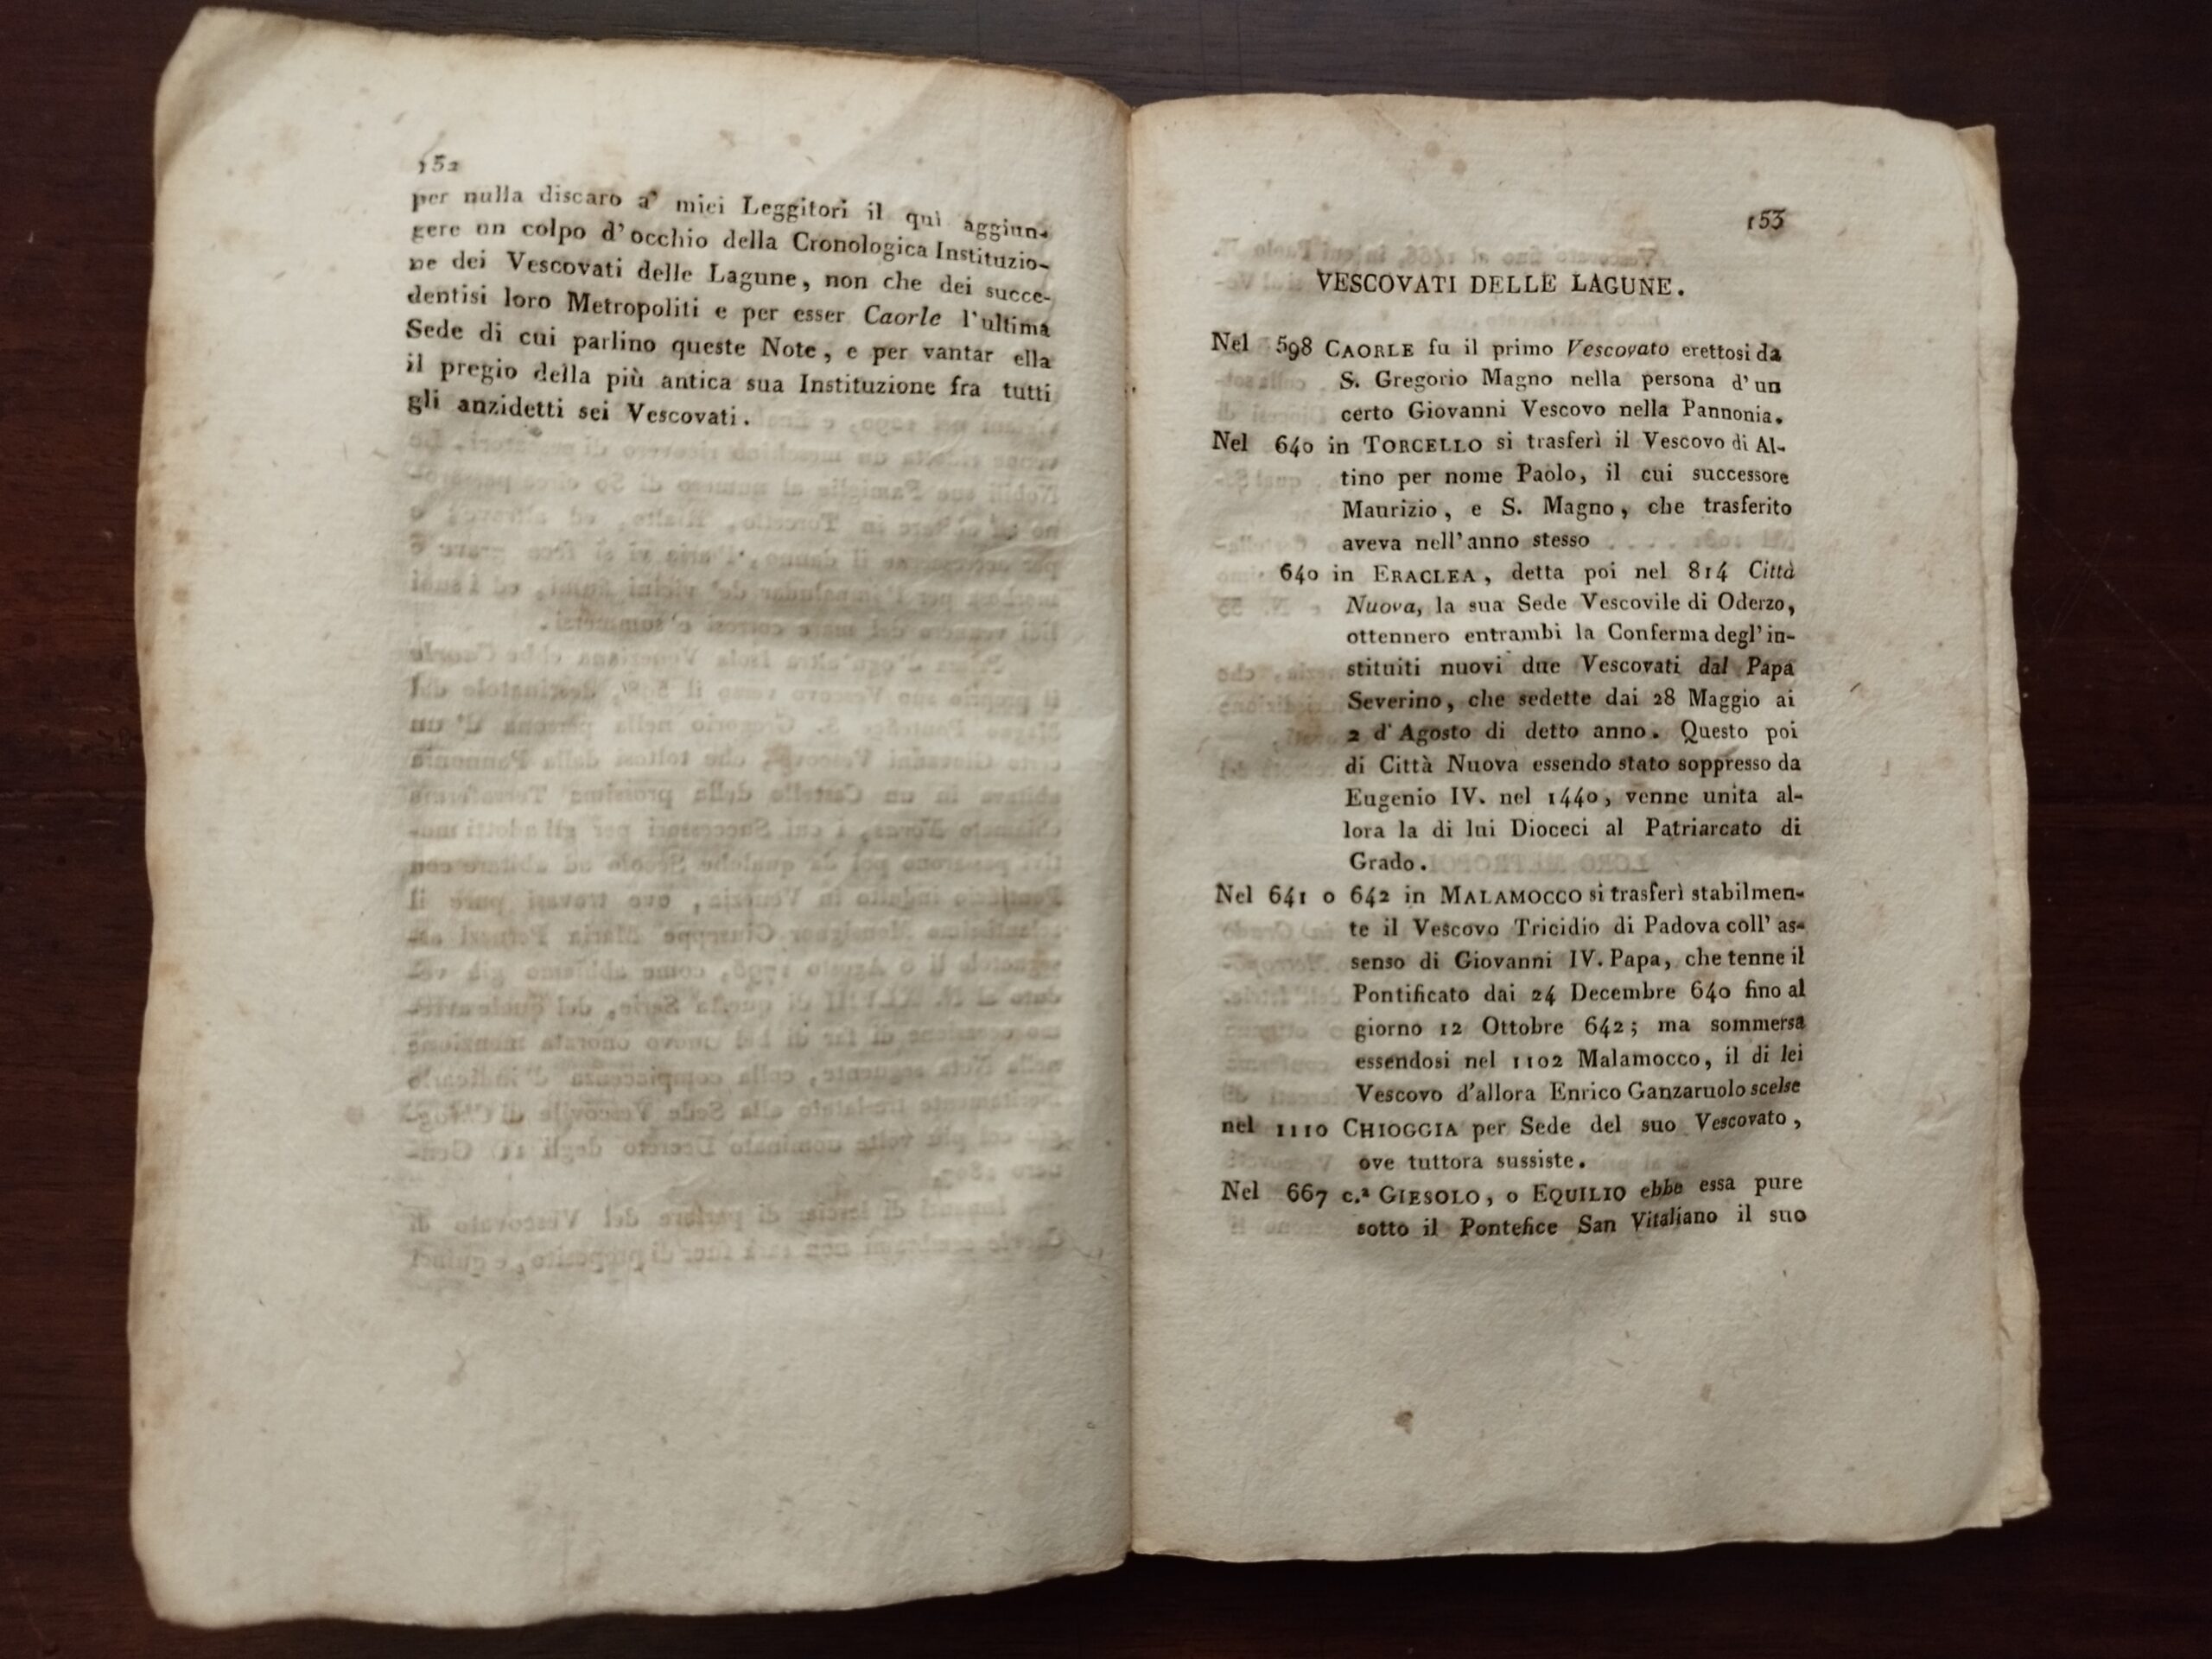 152
per nulla discaro a' miei Leggitori il quì aggiun-
gere un colpo d'occhio della Cronologica Instituzio-
ne dei Vescovati delle Lagune, non che dei succe-
dentisi loro Metropoliti e per esser Caorle l'ultima
Sede di cui parlino queste Note, e per vantar ella
il pregio della più antica sua Instituzione fra tutti
gli anzidetti sei Vescovati.
153
VESCOVATI DELLE LAGUNE.
Nel 598 CAORLE fu il primo Vescovato erettosi da
S. Gregorio Magno nella persona d'un
certo Giovanni Vescovo nella Pannonia.
Nel 640 in TORCELLO si trasferì il Vescovo di Al-
tino per nome Paolo, il cui successore
Maurizio, e S. Magno, che trasferito
aveva nell'anno stesso
640 in ERACLEA, detta poi nel 814 Città
Nuova, la sua Sede Vescovile di Oderzo,
ottennero entrambi la Conferma degl'in-
stituiti nuovi due Vescovati dal Papa
Severino, che sedette dai 28 Maggio ai
2 d'Agosto di detto anno. Questo poi
di Città Nuova essendo stato soppresso da
Eugenio IV. nel 1440, venne unita al-
lora la di lui Dioceci al Patriarcato di
Grado.
Nel 641 o 642 in MALAMOCCO si trasferì stabilmen-
te il Vescovo Tricidio di Padova coll' as-
senso di Giovanni IV. Papa, che tenne il
Pontificato dai 24 Decembre 640 fino al
giorno 12 Ottobre 642; ma sommersa
essendosi nel 1102 Malamocco, il di lei
Vescovo d'allora Enrico Ganzaruolo scelse
nel 1110 CHIOGGIA per Sede del suo Vescovato,
ove tuttora sussiste.
Nel 667 c.ª GIESOLO, o EQUILIO ebbe essa pure
sotto il Pontefice San Vitaliano il suo